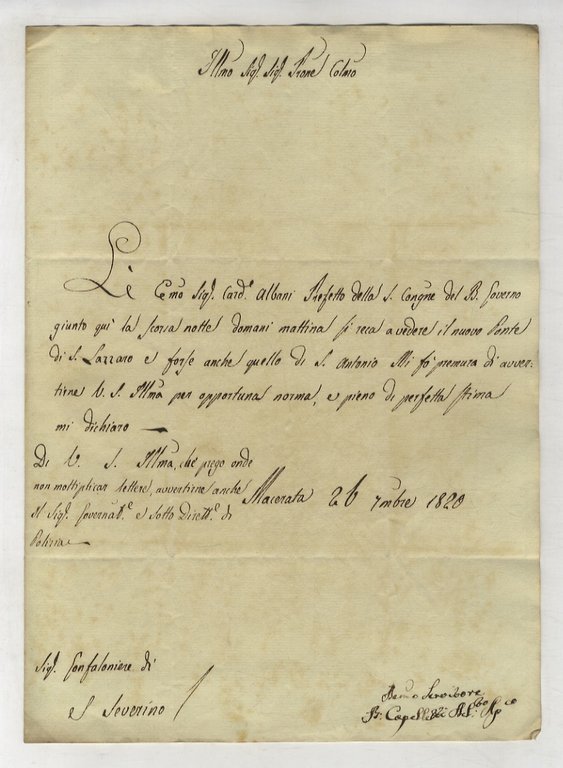 Illmo Sig. Sig. Prone Colmo
L'Emo Sig. Card.e Albani Prefetto della S. Congne del B. Governo
giunto quì la scorsa notte domani mattina si reca a vedere il nuovo Ponte
di S. Lazzaro e forse anche quello di S. Antonio Mi fò premura di avver=
tirne V. S. Illma per opportuna norma, e pieno di perfetta stima
mi dichiaro
Di V. S. Illma, che prego onde
non moltiplicar lettere, avvertirne anche
il Sig. Governat.e e sotto Dirett.e di
Polizia
Macerata 26 7mbre 1820
Sig. Gonfaloniere di
S Severino
Servitore